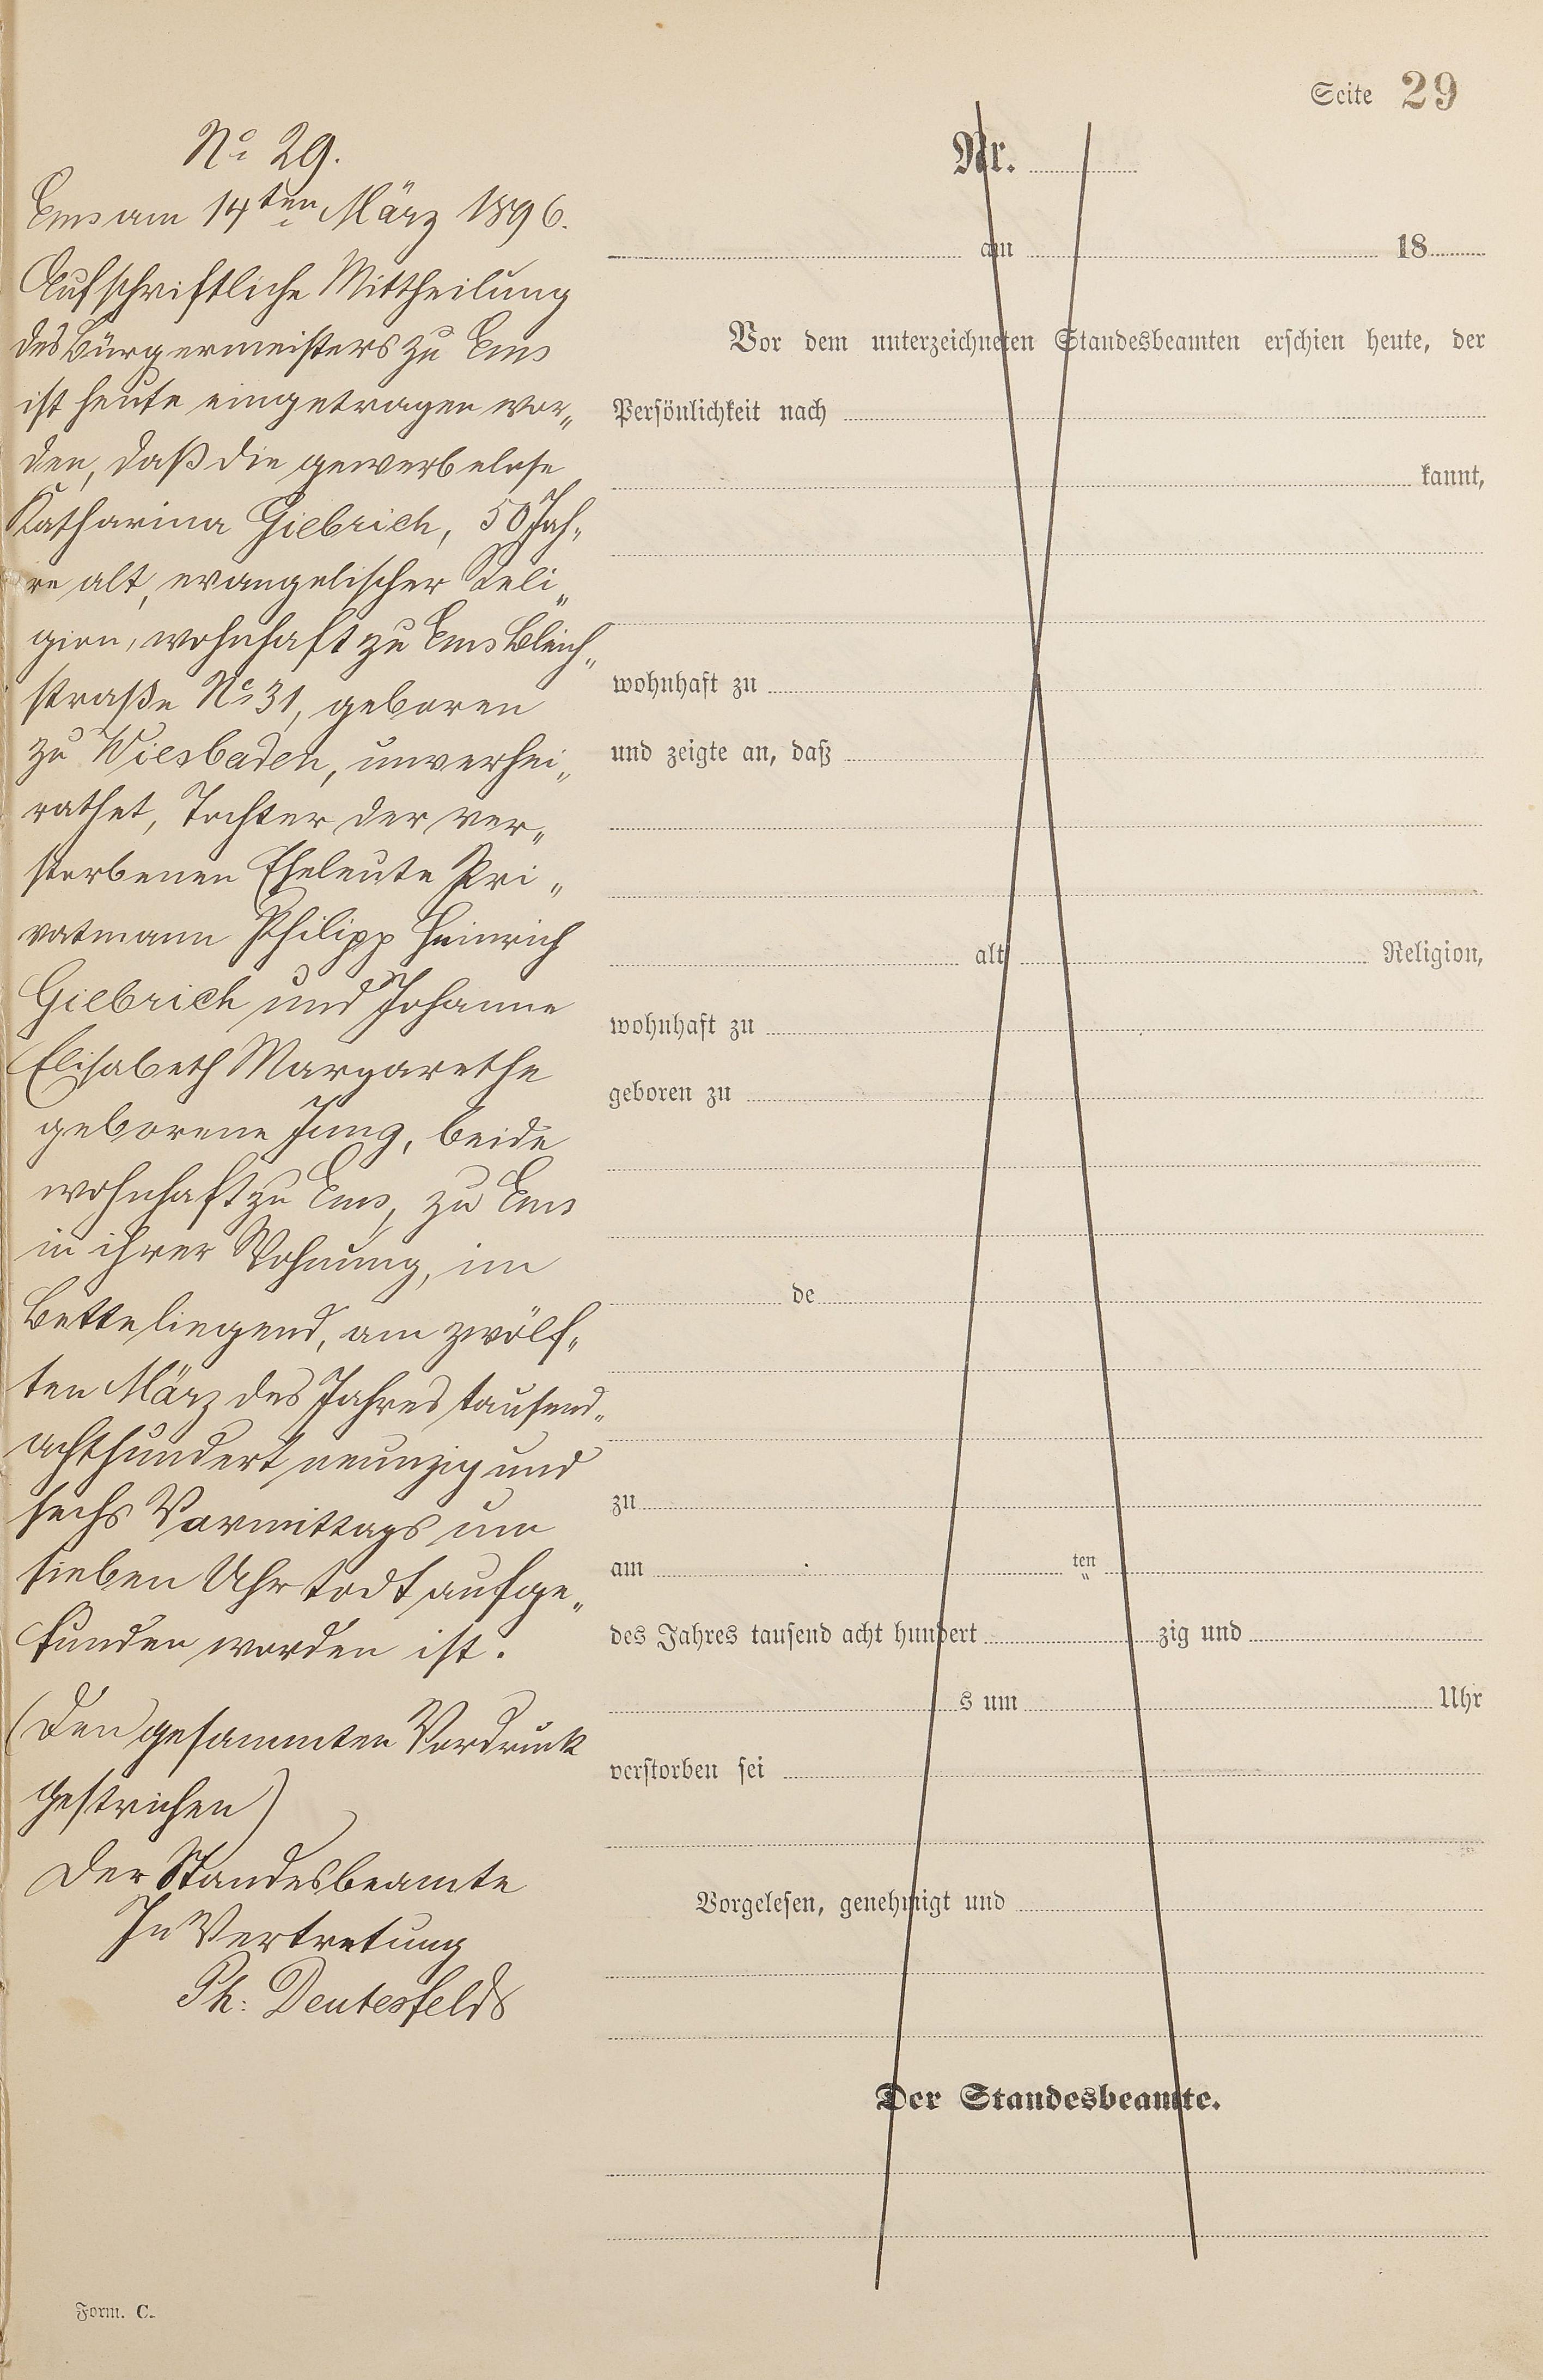 Seite 29
No 29.
Ems am 14ten März 1896.
Auf schriftliche Mittheilung
des Bürgermeisters zu Ems
ist heute eingetragen wor„
den, daß die gewerbelose
Katharina Giebrich, 50 Jah„
re alt, evangelischer Reli„
gion, wohnhaft zu Ems Bleich„
straße No 31, geboren
zu Wiesbaden, unverhei„
rathet, Tochter der ver„
storbenen Eheleute Pri„
vatmann Philipp Heinrich
Giebrich und Johanne
Elisabeth Margarethe
geborene Jung, beide
wohnhaft zu Ems, zu Ems
in ihrer Wohnung, im
Bette liegend, am zwölf„
ten März des Jahres tausend„
achthundert neunzig und
sechs Vormittags um
sieben Uhr todt aufge„
funden worden ist.
(Den gesammten Vordruck
gestrichen)
Der Standesbeamte
In Vertretung
Ph: Deutesfelds
Nr.
am 18
Vor dem unterzeichneten Standesbeamten erschien heute, der
Persönlichkeit nach
kannt,
wohnhaft zu
und zeigte an, daß
alt Religion,
wohnhaft zu
geboren zu
de
zu
am ten
des Jahres tausend acht hundert zig und
s um Uhr
verstorben sei
Vorgelesen, genehmigt und
Der Standesbeamte.
Form. C.